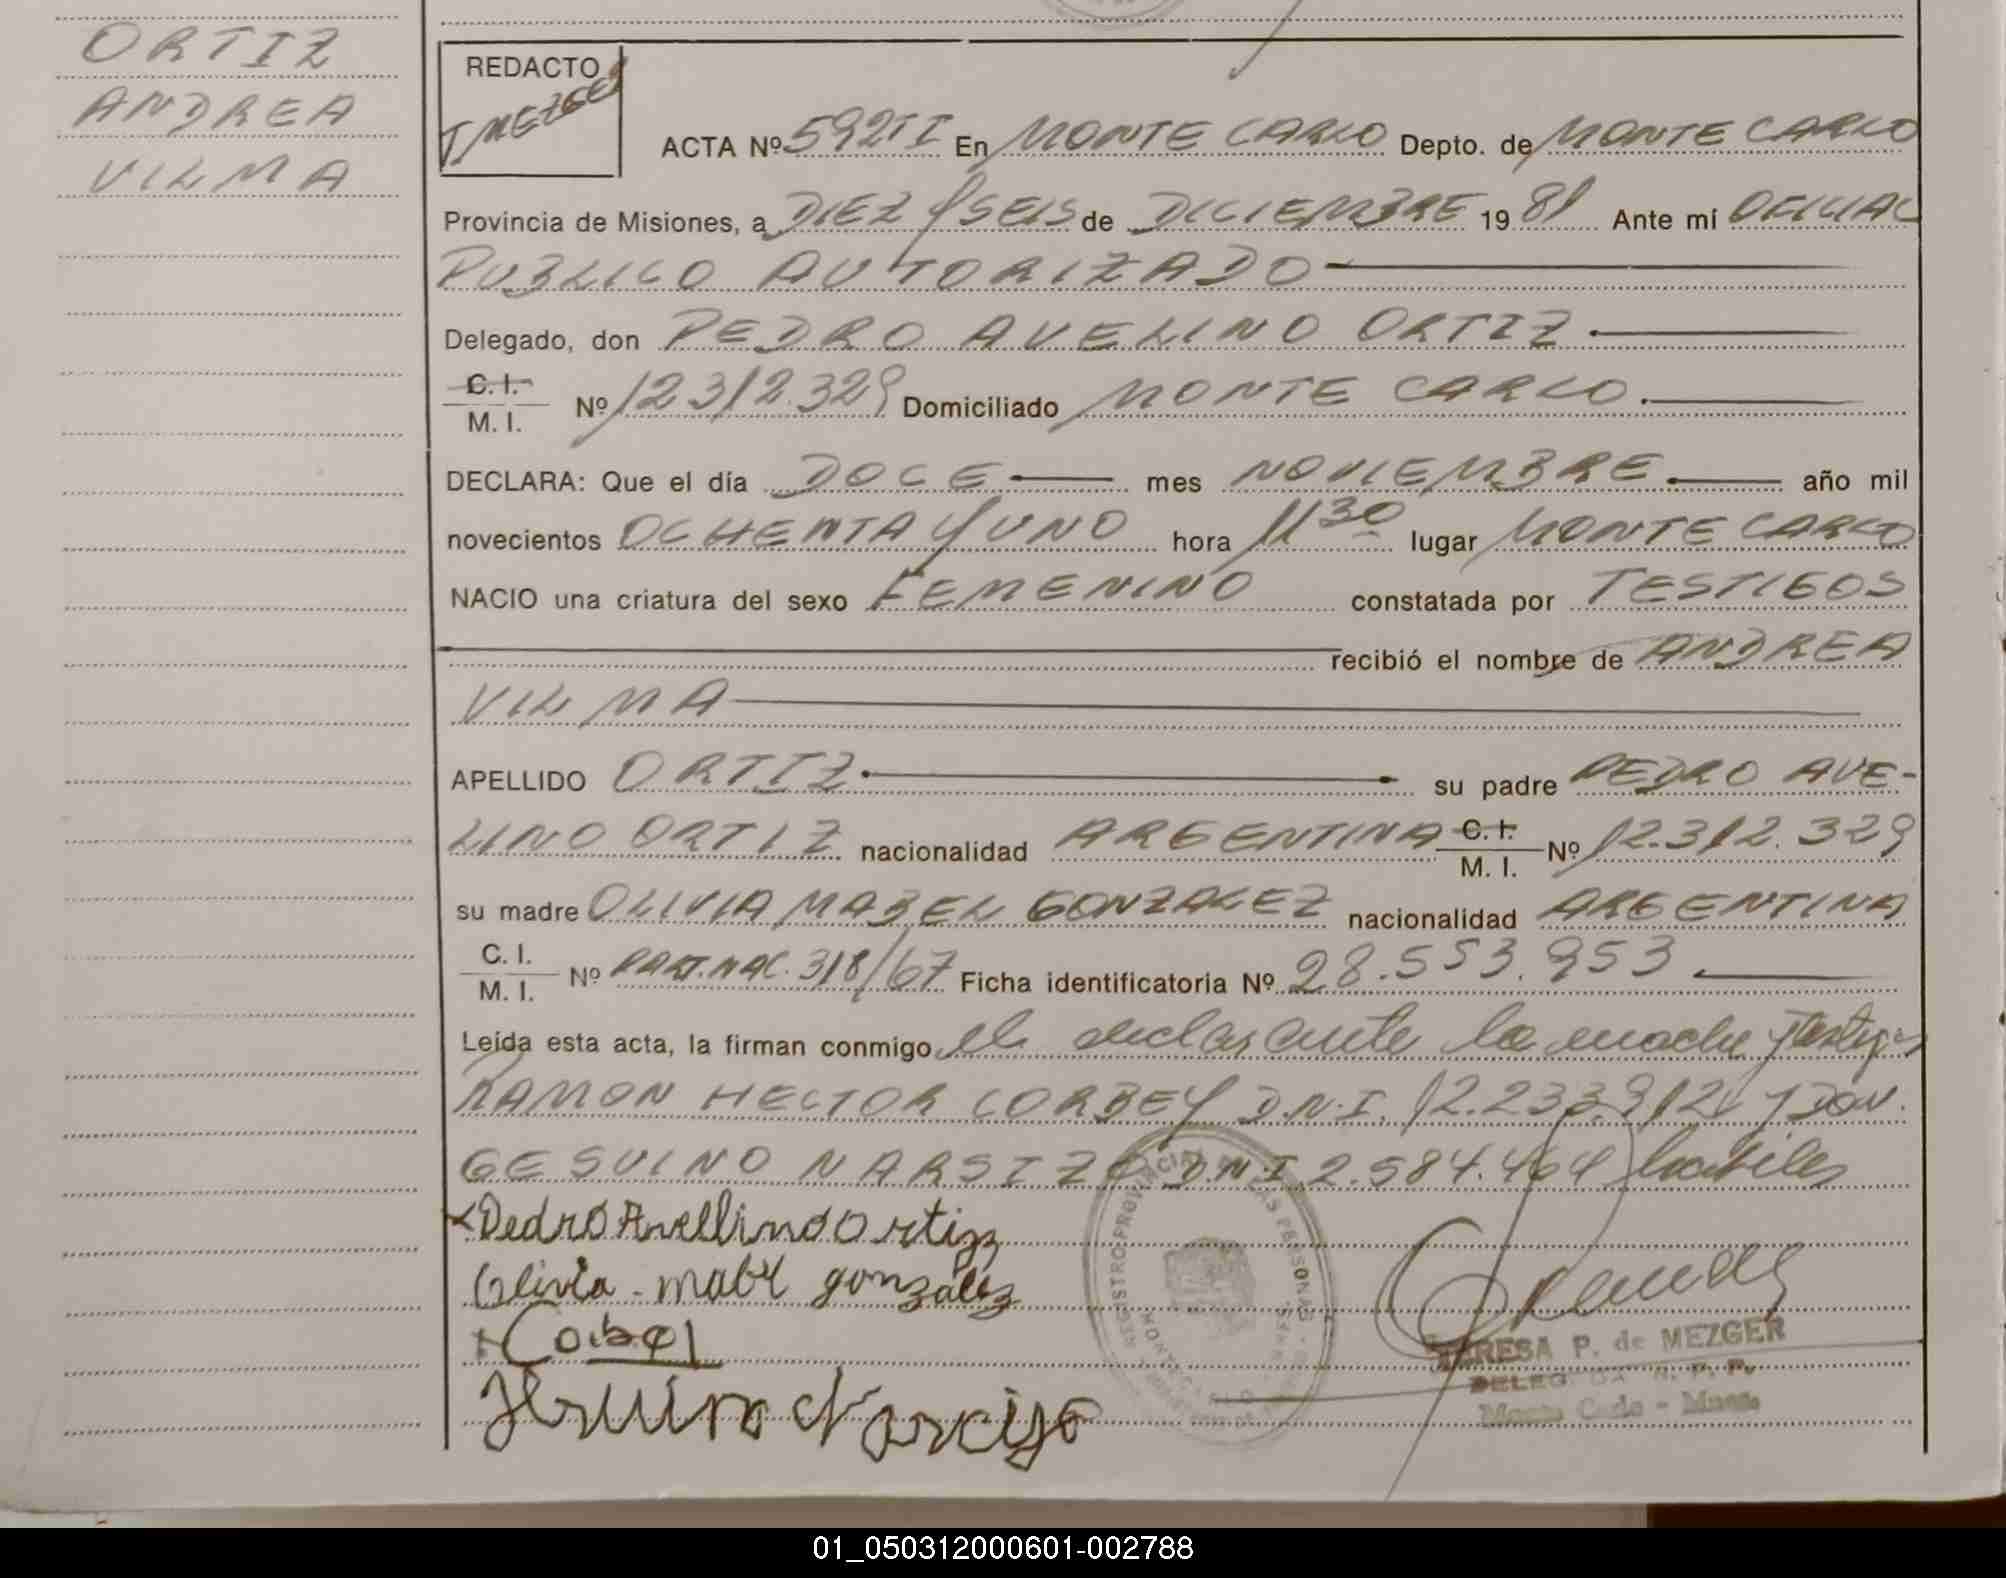 ORTIZ
ANDREA
VILMA
REDACTO
T MEZGER
ACTA Nº 592 II En MONTE CARLO Depto. de MONTE CARLO
Provincia de Misiones, a DIEZ Y SEIS de DICIEMBRE 19 81 Ante mí OFICIAL
PUBLICO AUTORIZADO
Delegado, don PEDRO AVELINO ORTIZ
C. I.
M. I. Nº 12312.329 Domiciliado MONTE CARLO.
DECLARA: Que el día DOCE mes NOVIEMBRE año mil
novecientos OCHENTA Y UNO hora 11 30 lugar MONTE CARLO
NACIO una criatura del sexo FEMENINO constatada por TESTIGOS
recibió el nombre de ANDREA
VILMA
APELLIDO ORTIZ su padre PEDRO AVE-
LINO ORTIZ nacionalidad ARGENTINA C. I. M. I. Nº 12.312.329
su madre OLIVIA MABEL GONZALEZ nacionalidad ARGENTINA
C. I.
M. I. Nº PART. NAC. 318/67 Ficha identificatoria Nº 28.553.953
Leída esta acta, la firman conmigo el declarante la madre y testigos
RAMON HECTOR CORBEY D.N.I. 12.233.912 y DON.
GESUINO NARSIZO D.N.I 2.584.464 habiles
Pedro Avellino Ortizz
Olivia mabel gonzalez
NARCISO
TERESA P. de MEZGER
DELEGADA R. P. P.
Monte Carlo - Mnes.
01_050312000601-002788